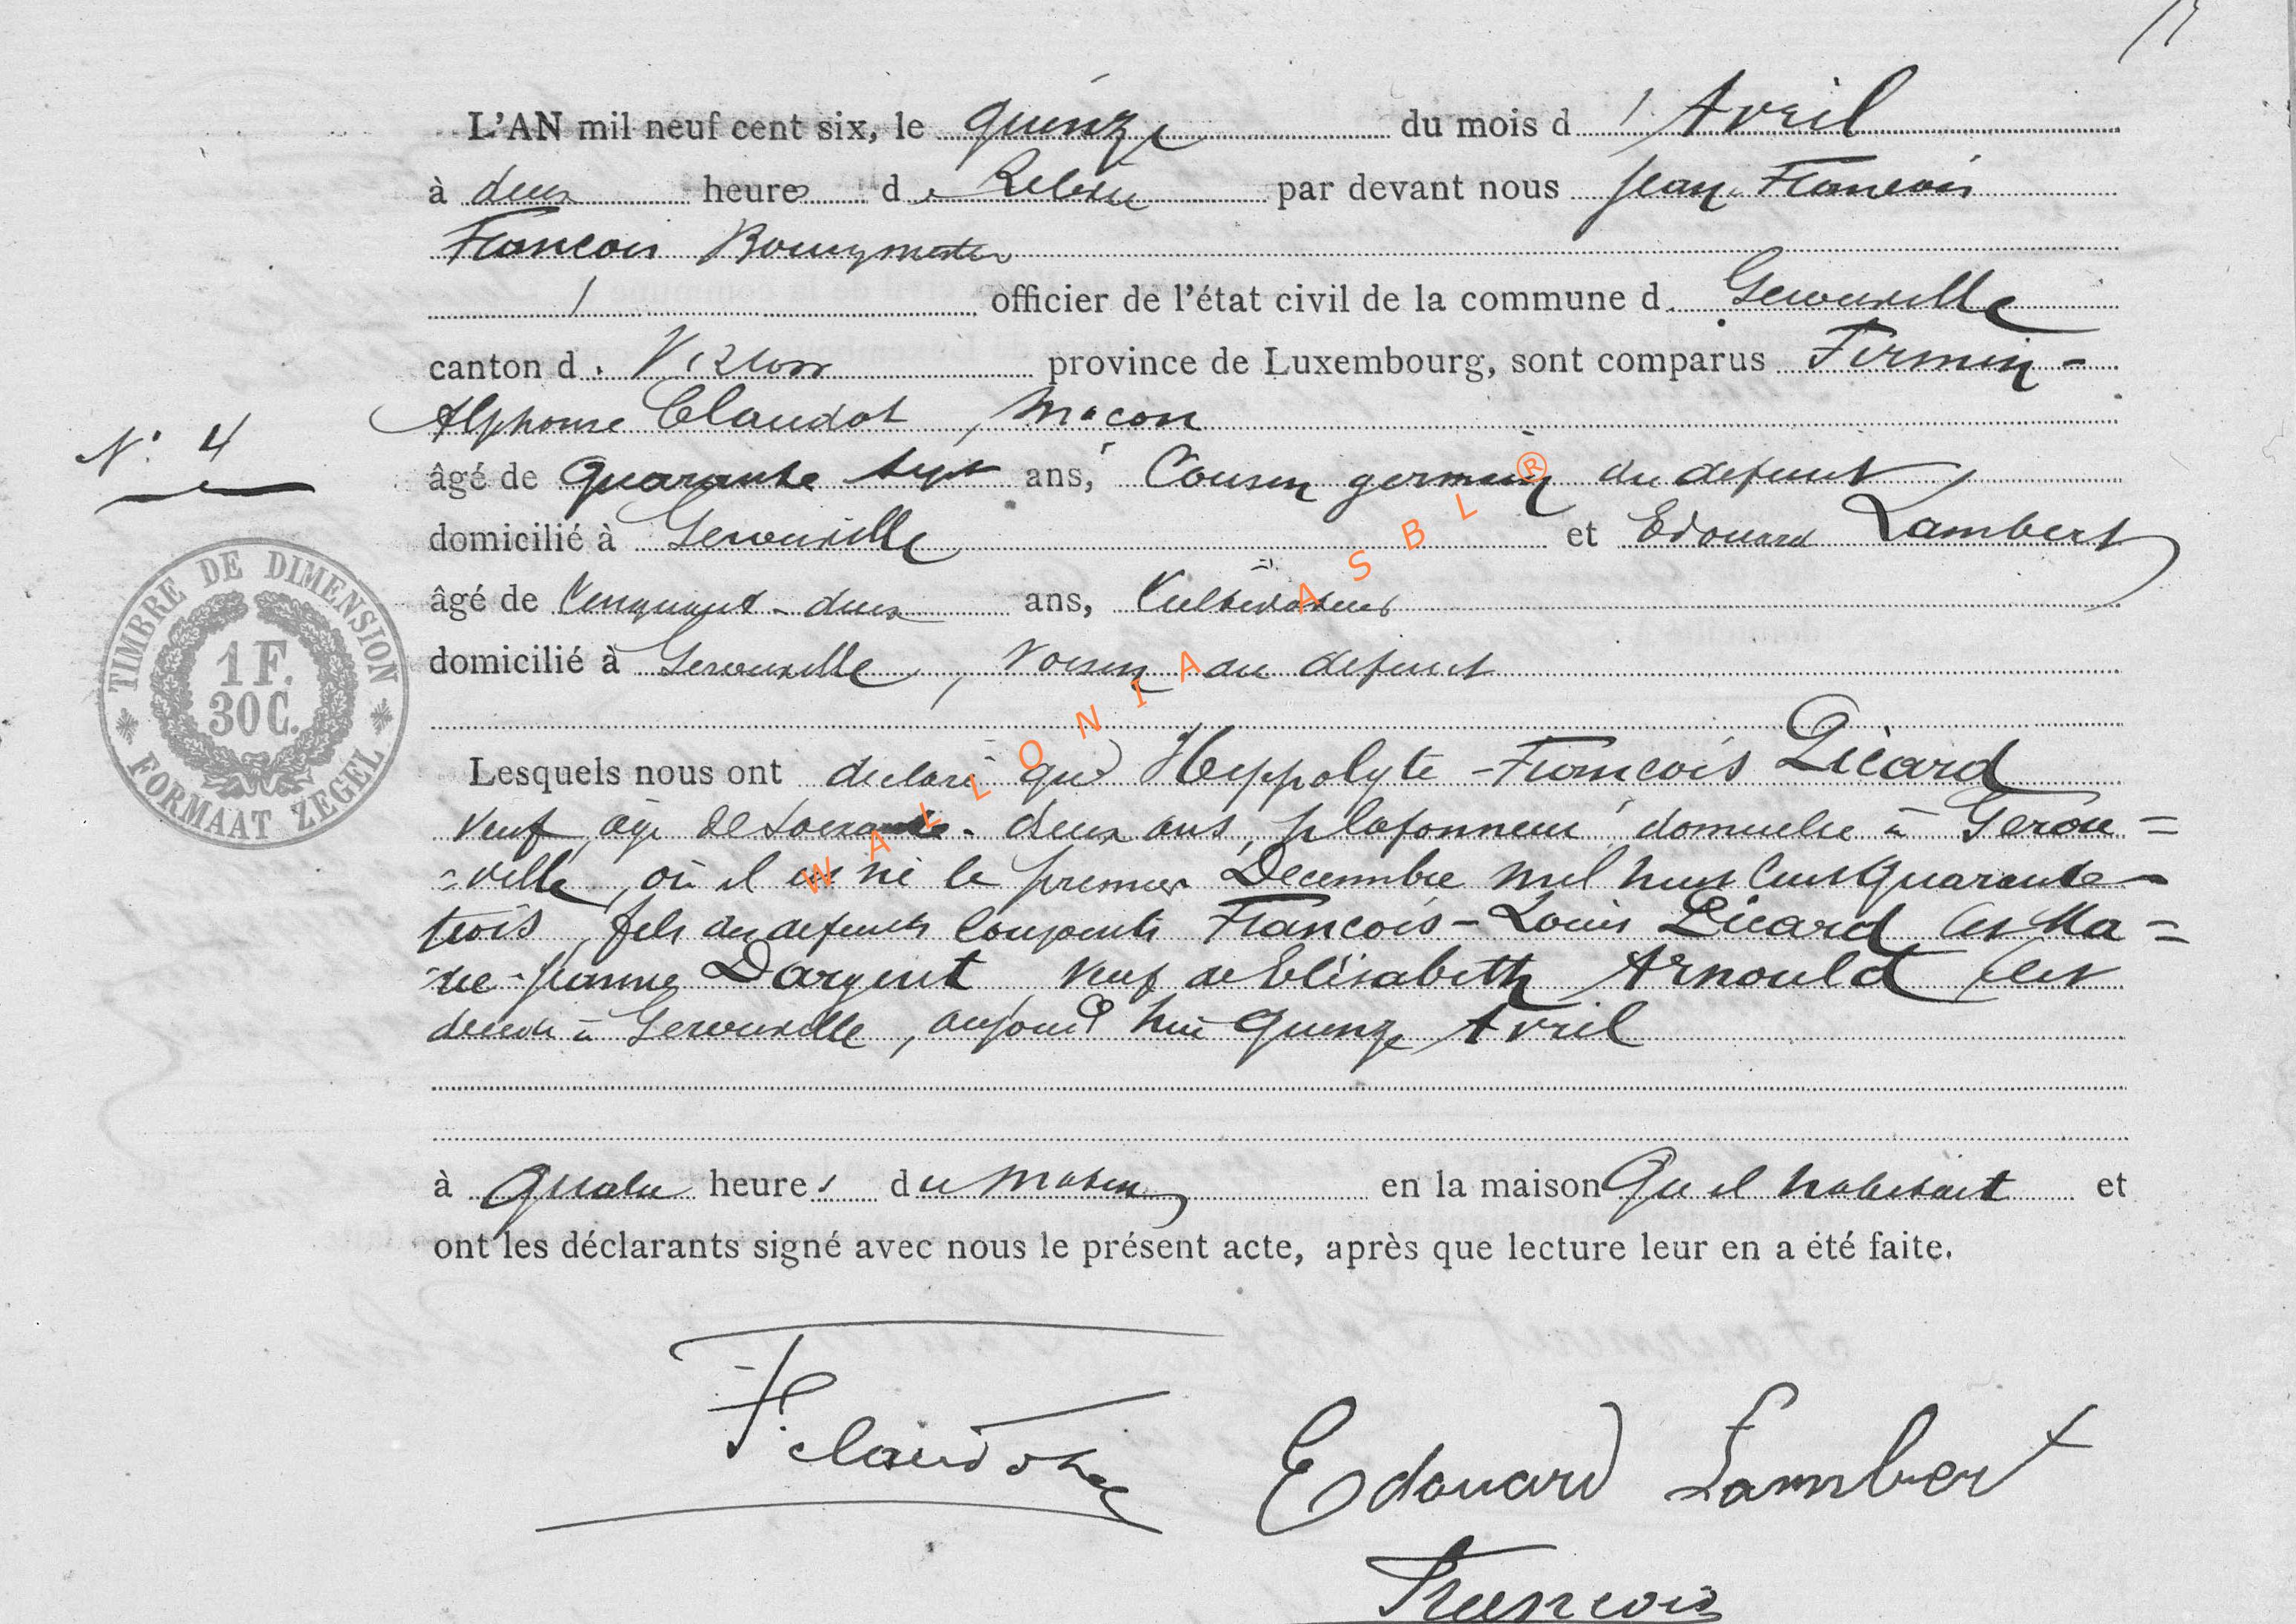 L'AN mil neuf cent six, le quinze du mois d'Avril
à deux heures de Relevée par devant nous Jean-François
François Bourgmestre
officier de l'état civil de la commune de Gerouville
canton de Virton province de Luxembourg, sont comparus Firmin-
Alphonse Claudot, Maçon
N° 4
âgé de quarante sept ans, Cousin germain du defunt,
domicilié à Gerouville et Edouard Lambert
âgé de Cinquante-deux ans, Cultivateur
domicilié à Gerouville, voisin du defunt
TIMBRE DE DIMENSION
1 F.
30 C.
FORMAAT ZEGEL
Lesquels nous ont déclaré que Hyppolyte-François Picard
veuf, âgé de soixante-deux ans, plafonneur domicilié à Gerou=
=ville, où il est né le premier Decembre mil huit cent quarante-
trois, fils des defunts conjoints François-Louis Picard et Ma=
rie-Jeanne Dargent, veuf de Elisabeth Arnould est
décédé à Gerouville, aujourd'hui quinze Avril
à quatre heures du matin en la maison qu'il habitait et
ont les déclarants signé avec nous le présent acte, après que lecture leur en a été faite.
F. Claudot Edouard Lambert
François
WALLONIA ASBL ®